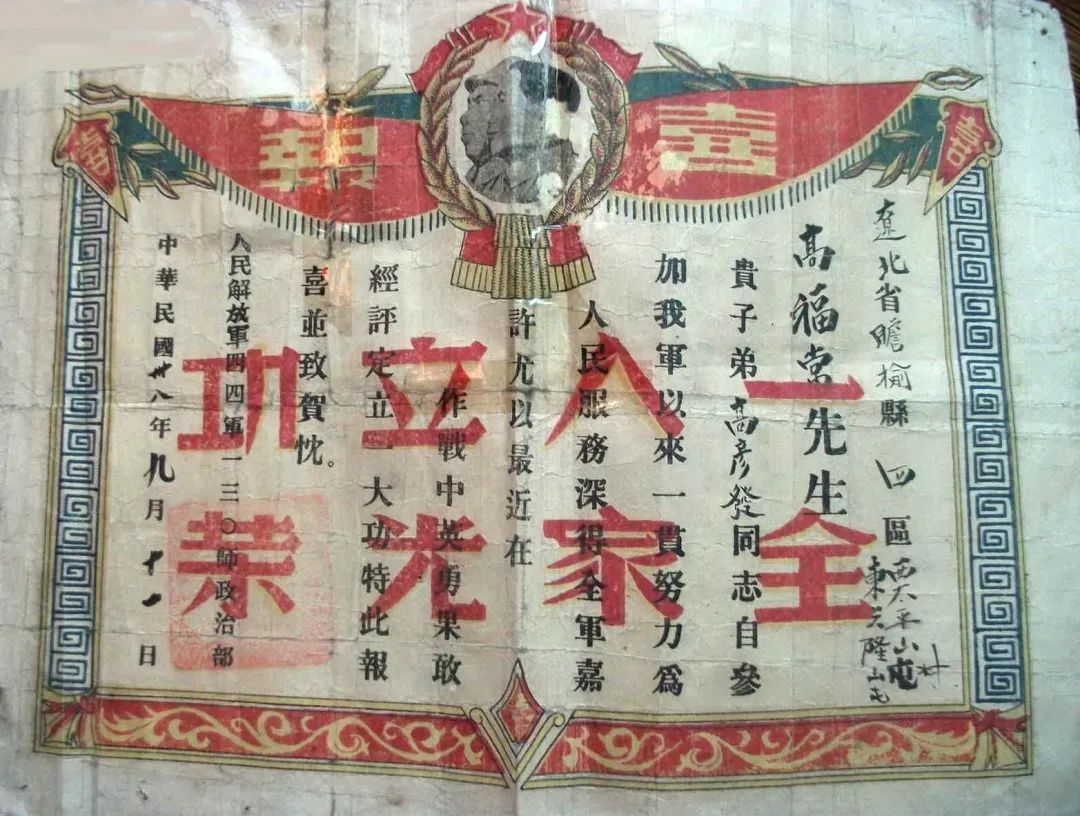 喜報
遼北省瞻榆縣四區西太平山屯村
東兴隆山屯
高福常先生
貴子弟高彦發同志自參
加我軍以來一貫努力爲
人民服務深得全軍嘉
許尤以最近在
作戰中英勇果敢
經評定立一大功特此報
喜並致賀忱。
人民解放軍四四軍一三〇師政治部
中華民國卅八年九月十一日
一人立功
全家光榮
喜
喜
喜